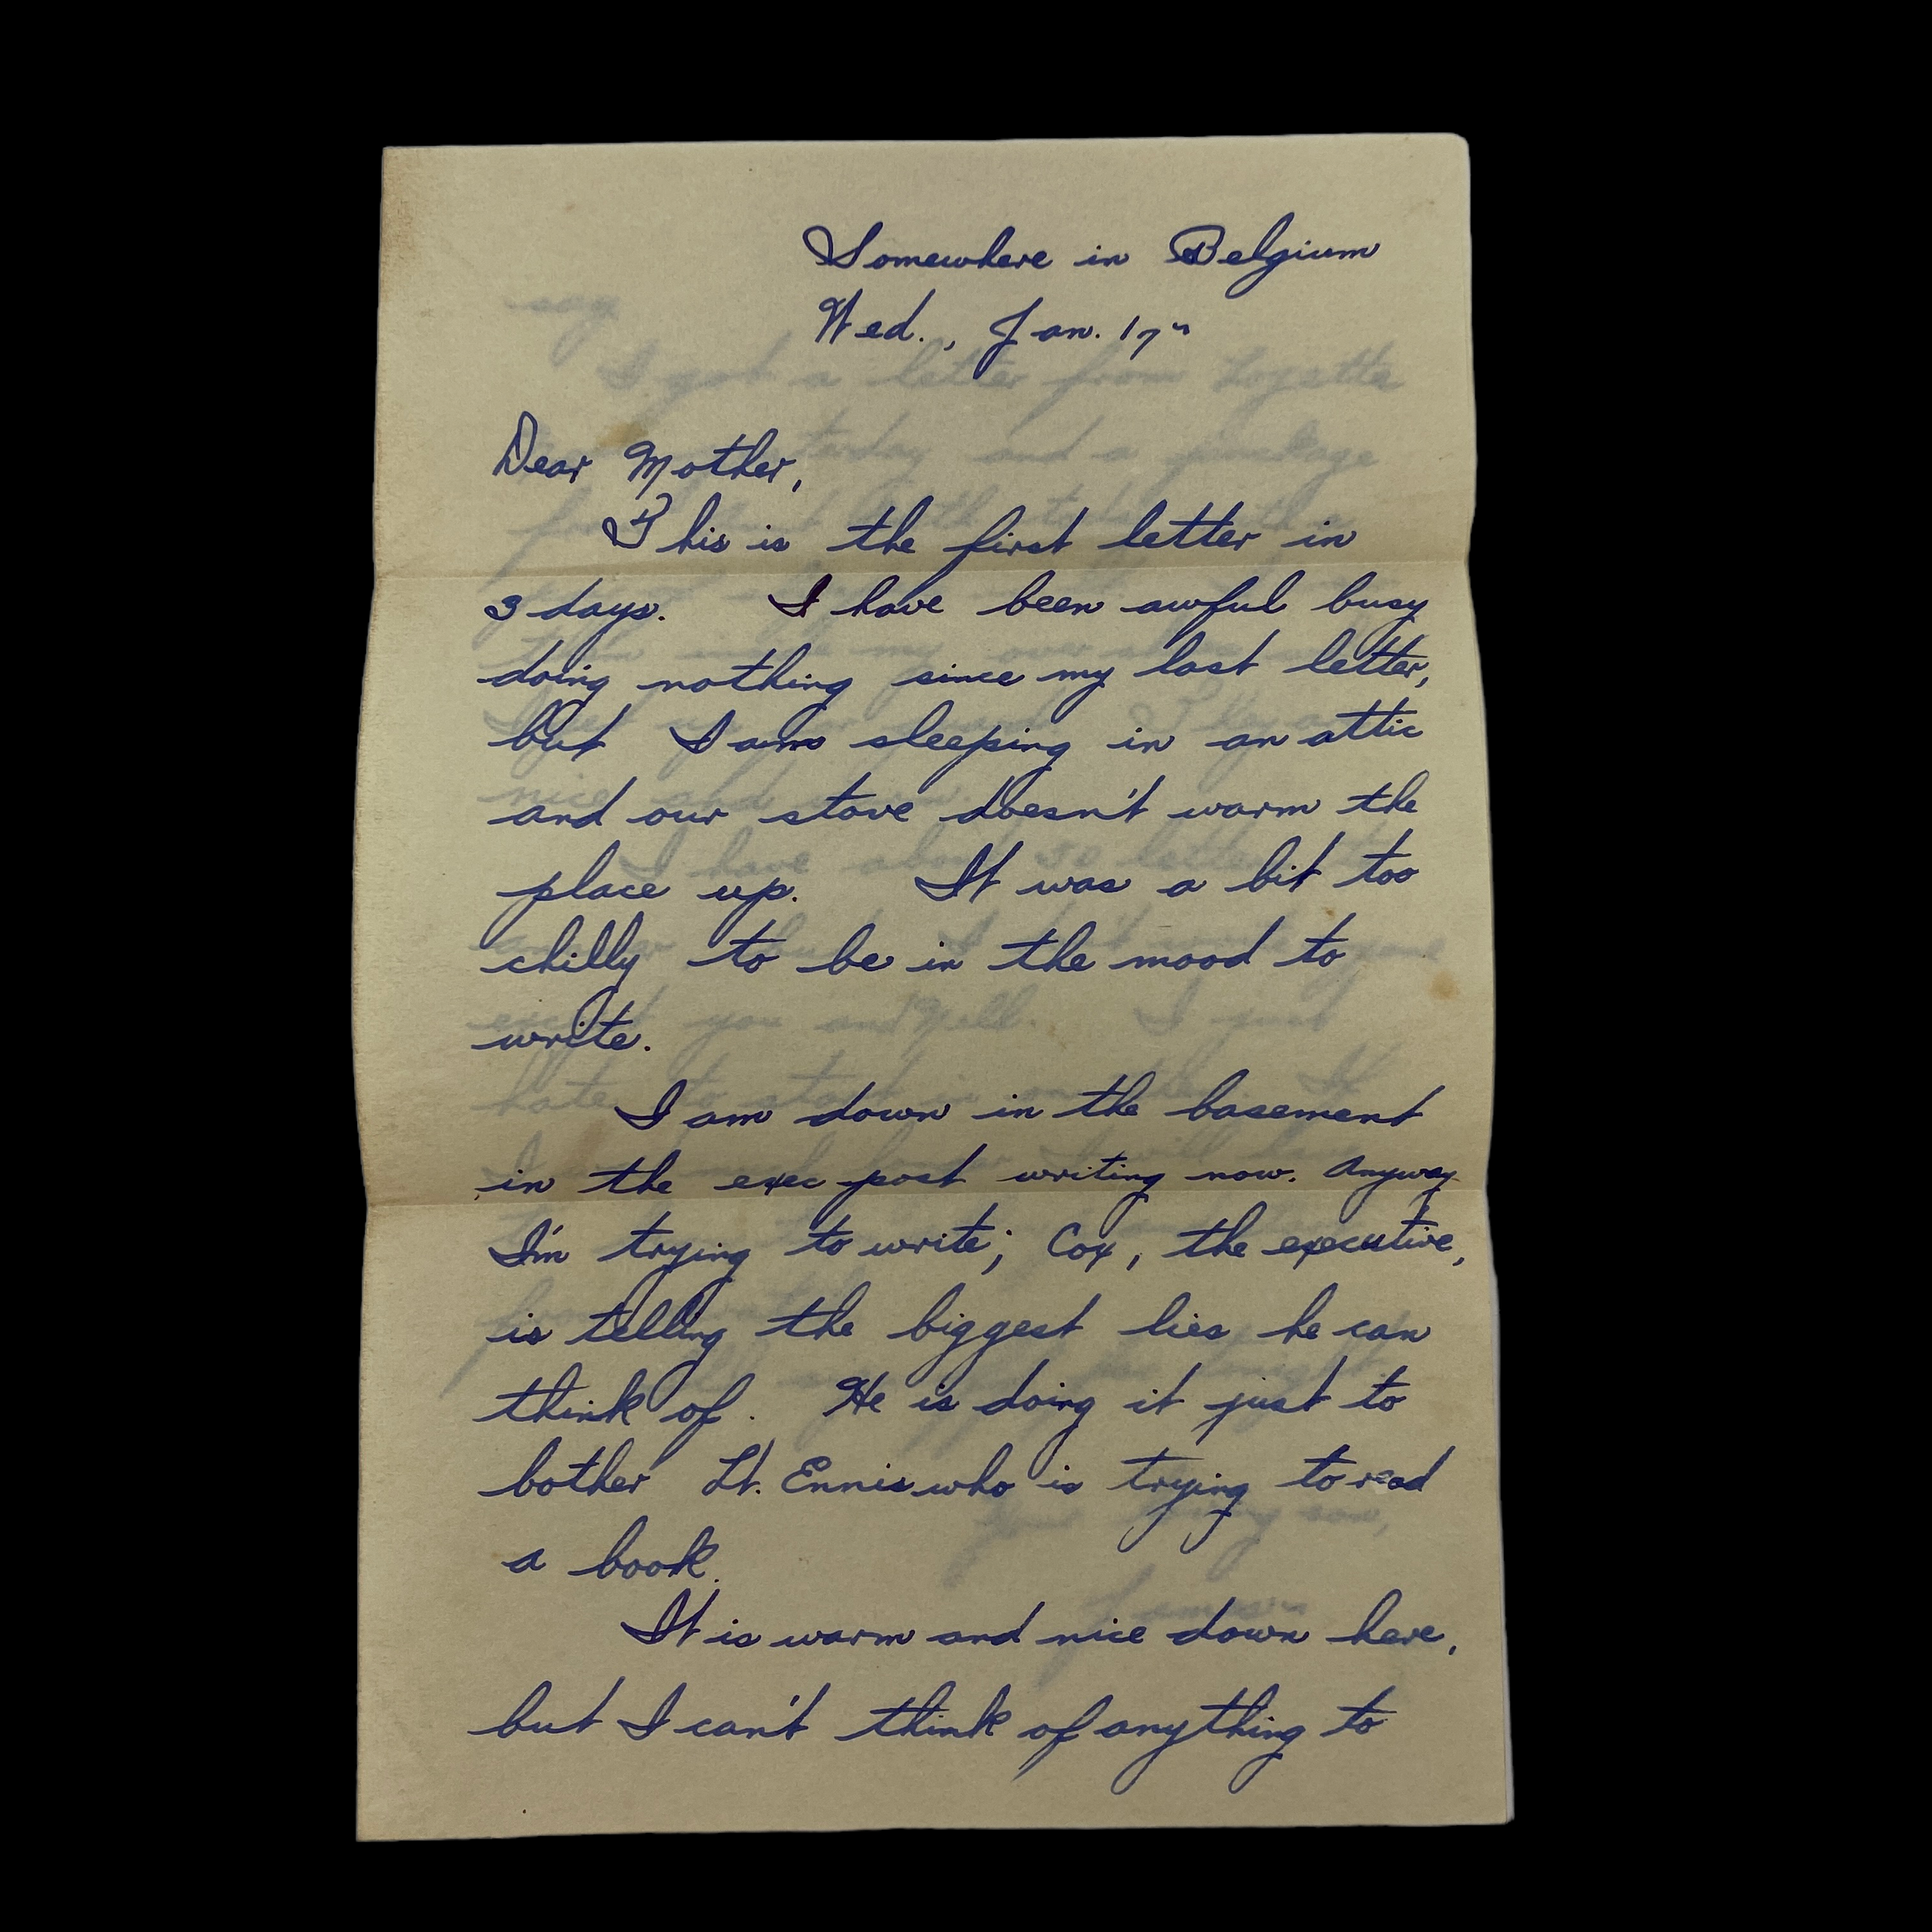 Somewhere in Belgium
Wed., Jan. 17th
Dear Mother,
This is the first letter in
3 days. I have been awful busy
doing nothing since my last letter,
but I am sleeping in an attic
and our stove doesn't warm the
place up. It was a bit too
chilly to be in the mood to
write.
I am down in the basement
in the exec post writing now. Anyway
I'm trying to write; Cox, the executive,
is telling the biggest lies he can
think of. He is doing it just to
bother Lt. Ennis who is trying to read
a book.
It is warm and nice down here,
but I can't think of anything to